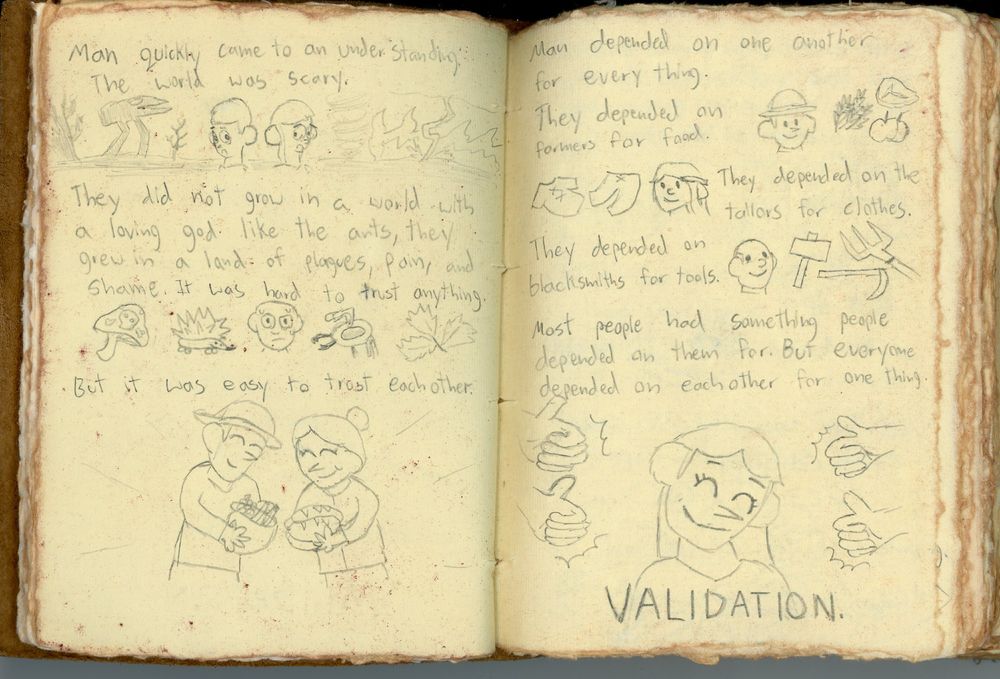 Man quickly came to an understanding.
The world was scary.
They did not grow in a world with
a loving god. like the ants, they
grew in a land of plagues, pain, and
shame. It was hard to trust anything.
But it was easy to trust eachother.
Man depended on one another
for every thing.
They depended on
farmers for food.
They depended on the
tailors for clothes.
They depended on
blacksmiths for tools.
Most people had something people
depended on them for. But everyone
depended on eachother for one thing.
VALIDATION.